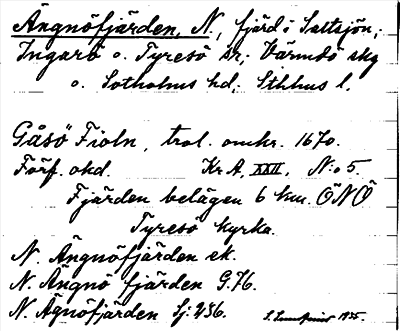 Ängnöfjärden, N., fjärd i Saltsjön,
Ingarö o. Tyresö sn; Värmdö skg
o. Sotholms hd; Sthlms l.
Gåsö Fioln, trol. omkr. 1670.
Förf. okd. Kr A, XXII, N:o 5.
Fjärden belägen 6 km. ÖNÖ
Tyresö kyrka.
N. Ängnöfjärden ek.
N. Ängnö fjärden G.76.
N. Ägnöfjärden Sj: 236.
1935.